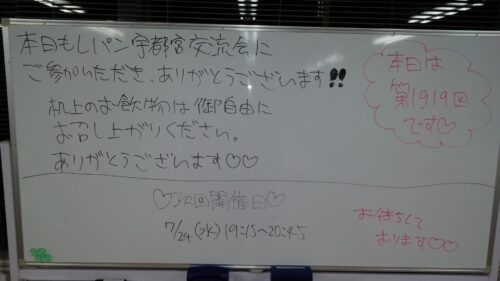 本日もしパン宇都宮交流会に
ご参加いただき、ありがとうございます!!
机上のお飲物は御自由に
お召し上がりください。
ありがとうございます♡♡
本日は
第1919回
です♡
♡次回開催日♡
7/24(水) 19:15〜20:45
お待ちして
おります♡♡